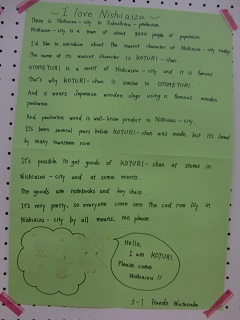 ~ I love Nishiaizu ~
There is Nishiaizu-city in Fukushima-prefecture.
Nishiaizu-city is a town of about 8000 people of population.
I'd like to introduce about the mascot character of Nishiaizu-city today.
The name of its mascot character is KOYURI-chan.
OTOMEYURI is a motif of Nishiaizu-city and it is famous
that's why KOYURI-chan is similar to OTOMEYURI.
And it wears Japanese wooden clogs using a famous wooden
paulownia.
And paulownia wood is well-know product in Nishiaizu-city.
It's been several years before KOYURI-chan was made, but it's loved
by many townsmen now.
It's possible to get goods of KOYURI-chan at stores in
Nishiaizu-city and at some events.
The goods are notebooks and key chain.
It's very pretty, so everyone come see the lily in
Nishiaizu-city by all means, too please.
Hello,
I am KOYURI.
Please come
Nishiaizu !!
2-1 Kaede